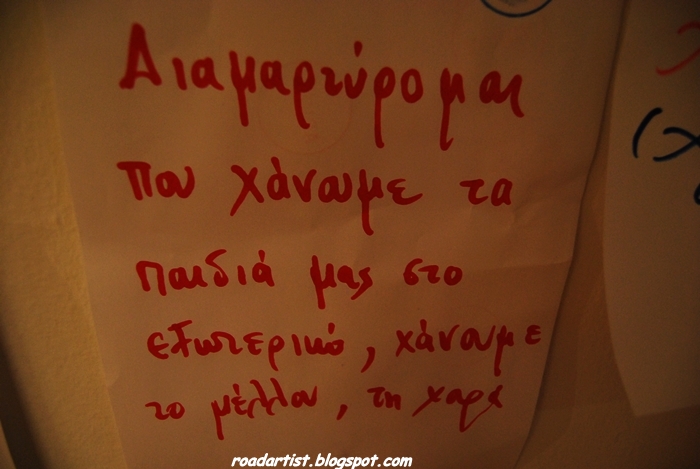 Διαμαρτύρομαι
που χάνουμε τα
παιδιά μας στο
εξωτερικό, χάνουμε
το μέλλον, τη χαρά
roadartist.blogspot.com